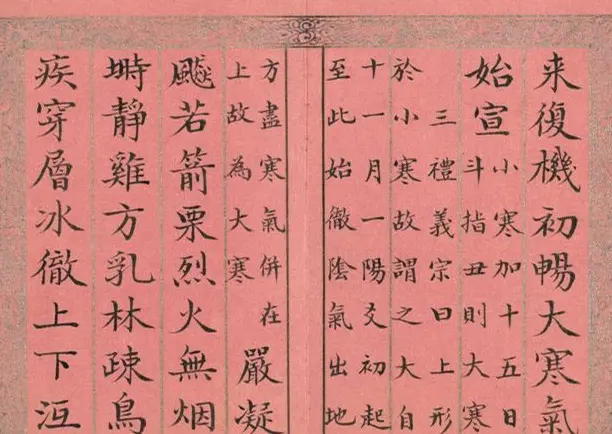 来復機初暢大寒氣
始宣
小寒加十五日
斗指丑則大寒
三禮義宗曰上形
於小寒故謂之大自
十一月一陽爻初起
至此始徹陰氣出地
方盡寒氣併在
上故為大寒
嚴凝
颷若箭栗烈火無烟
塒靜雞方乳林疎鳥
疾穿層冰徹上下沍